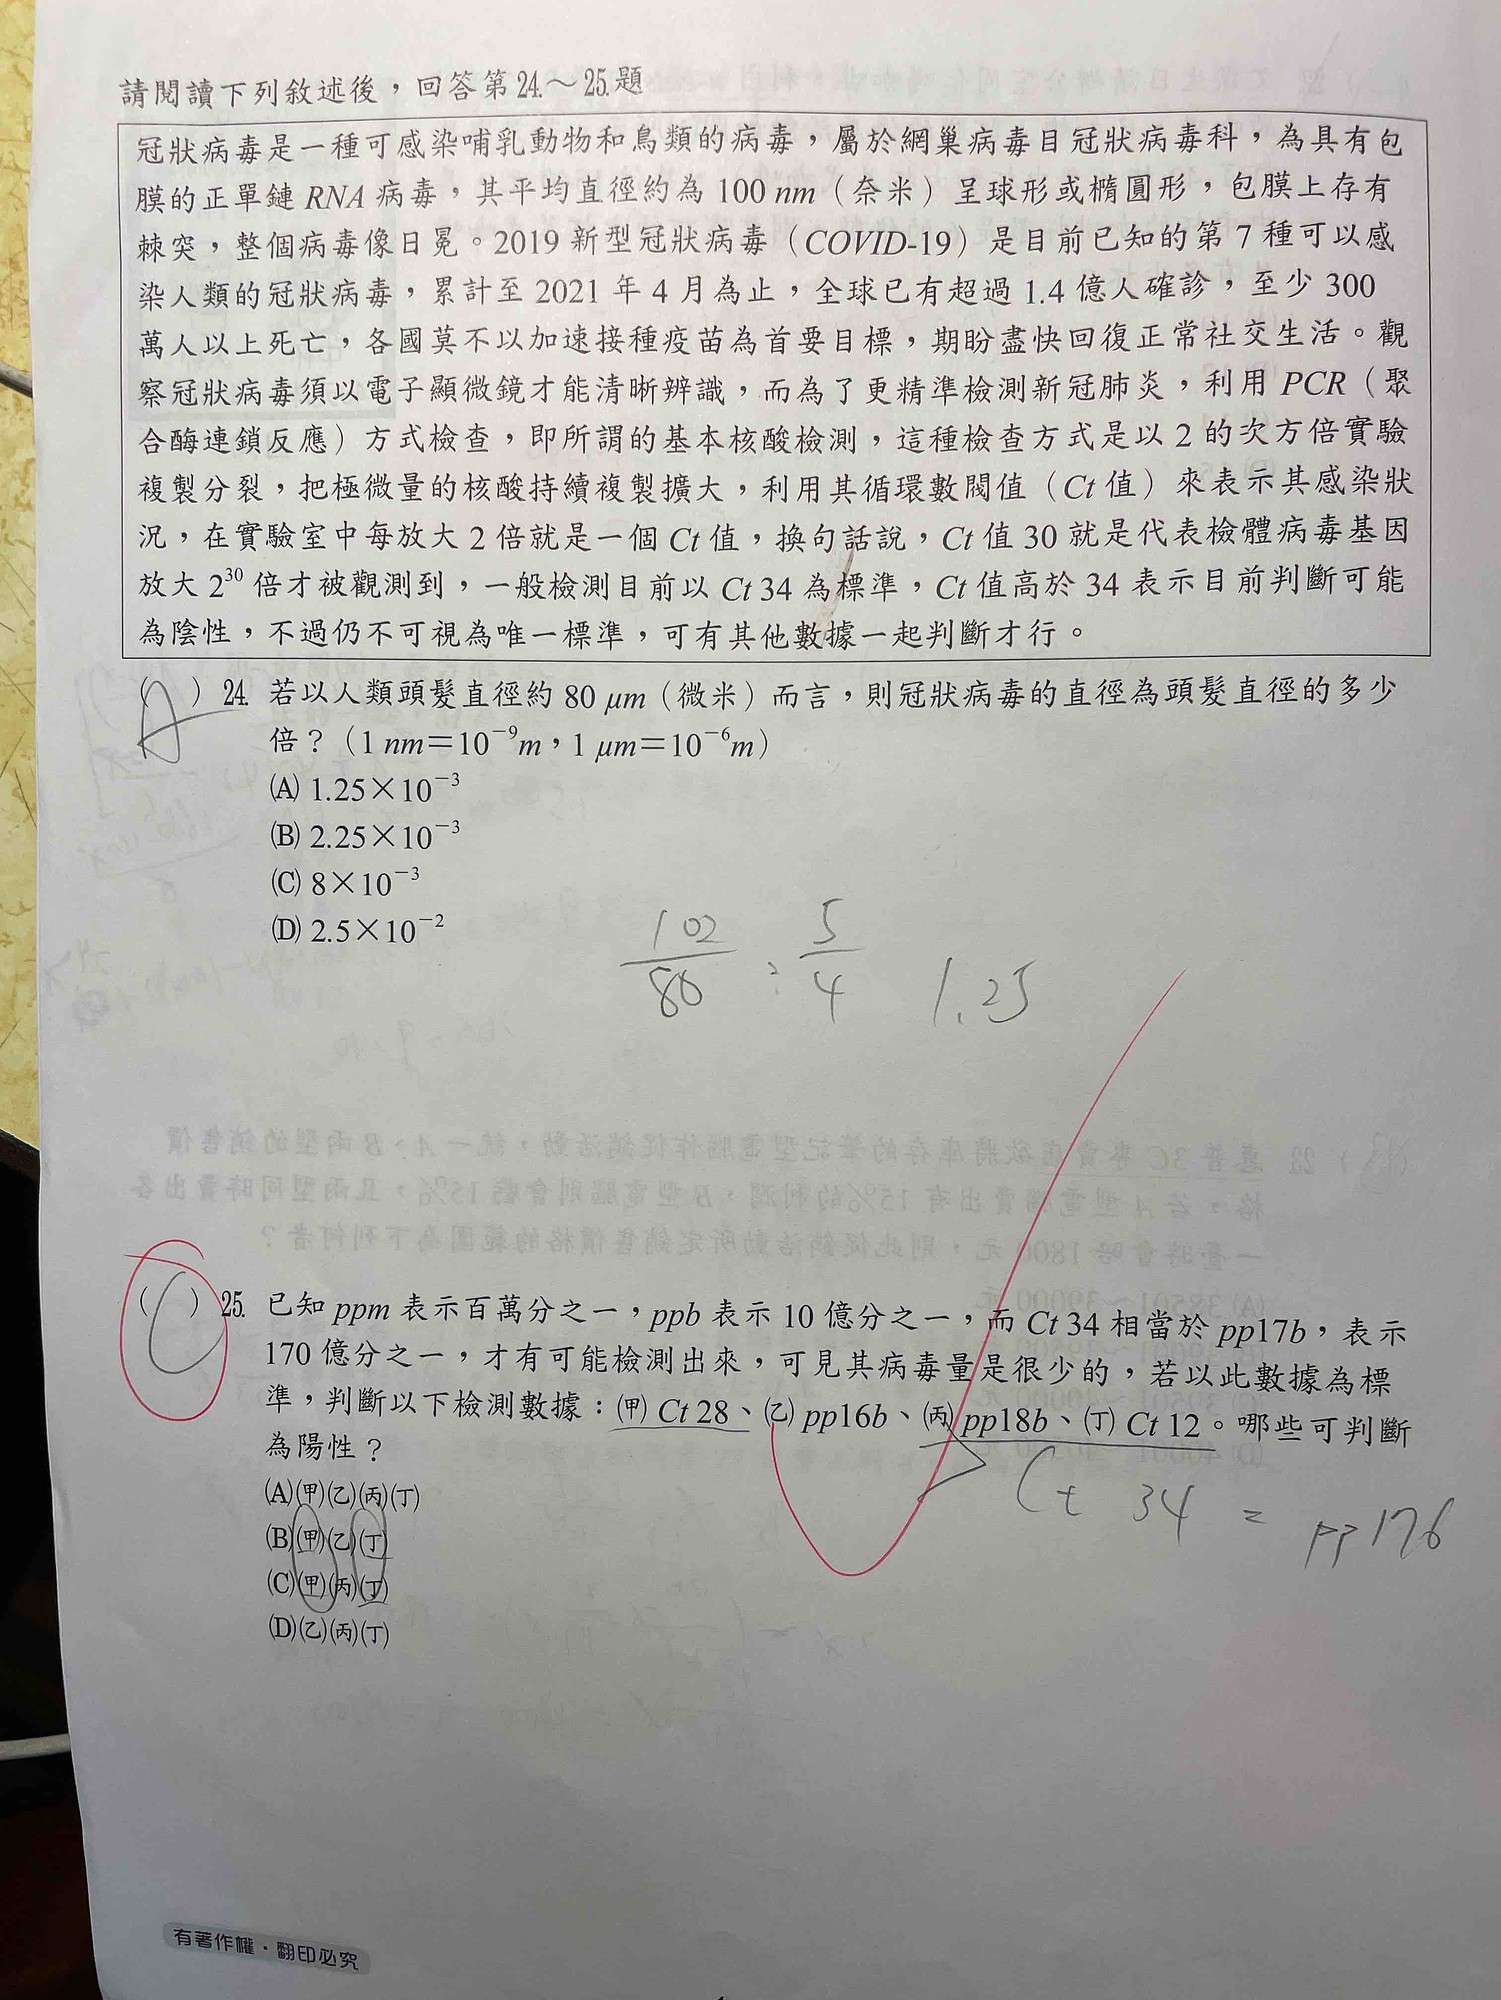 請閱讀下列敘述後，回答第24.～25.題
冠狀病毒是一種可感染哺乳動物和鳥類的病毒，屬於網巢病毒目冠狀病毒科，為具有包
膜的正單鏈 RNA 病毒，其平均直徑約為 100 nm（奈米）呈球形或橢圓形，包膜上存有
棘突，整個病毒像日冕。2019 新型冠狀病毒（COVID-19）是目前已知的第 7 種可以感
染人類的冠狀病毒，累計至 2021 年 4 月為止，全球已有超過 1.4 億人確診，至少 300
萬人以上死亡，各國莫不以加速接種疫苗為首要目標，期盼盡快回復正常社交生活。觀
察冠狀病毒須以電子顯微鏡才能清晰辨識，而為了更精準檢測新冠肺炎，利用 PCR（聚
合酶連鎖反應）方式檢查，即所謂的基本核酸檢測，這種檢查方式是以 2 的次方倍實驗
複製分裂，把極微量的核酸持續複製擴大，利用其循環數閥值（Ct 值）來表示其感染狀
況，在實驗室中每放大 2 倍就是一個 Ct 值，換句話說，Ct 值 30 就是代表檢體病毒基因
放大 2³⁰ 倍才被觀測到，一般檢測目前以 Ct 34 為標準，Ct 值高於 34 表示目前判斷可能
為陰性，不過仍不可視為唯一標準，可有其他數據一起判斷才行。
（A）24. 若以人類頭髮直徑約 80 μm（微米）而言，則冠狀病毒的直徑為頭髮直徑的多少
倍？（1 nm＝10⁻⁹m，1 μm＝10⁻⁶m）
(A) 1.25×10⁻³
(B) 2.25×10⁻³
(C) 8×10⁻³
(D) 2.5×10⁻²
5/4 1.25
（C）25. 已知 ppm 表示百萬分之一，ppb 表示 10 億分之一，而 Ct 34 相當於 pp17b，表示
170 億分之一，才有可能檢測出來，可見其病毒量是很少的，若以此數據為標
準，判斷以下檢測數據：(甲) Ct 28、(乙) pp16b、(丙) pp18b、(丁) Ct 12。哪些可判斷
為陽性？
(A)(甲)(乙)(丙)(丁)
(B)(甲)(乙)(丁)
(C)(甲)(丙)(丁)
(D)(乙)(丙)(丁)
Ct 34 = pp17b
有著作權・翻印必究